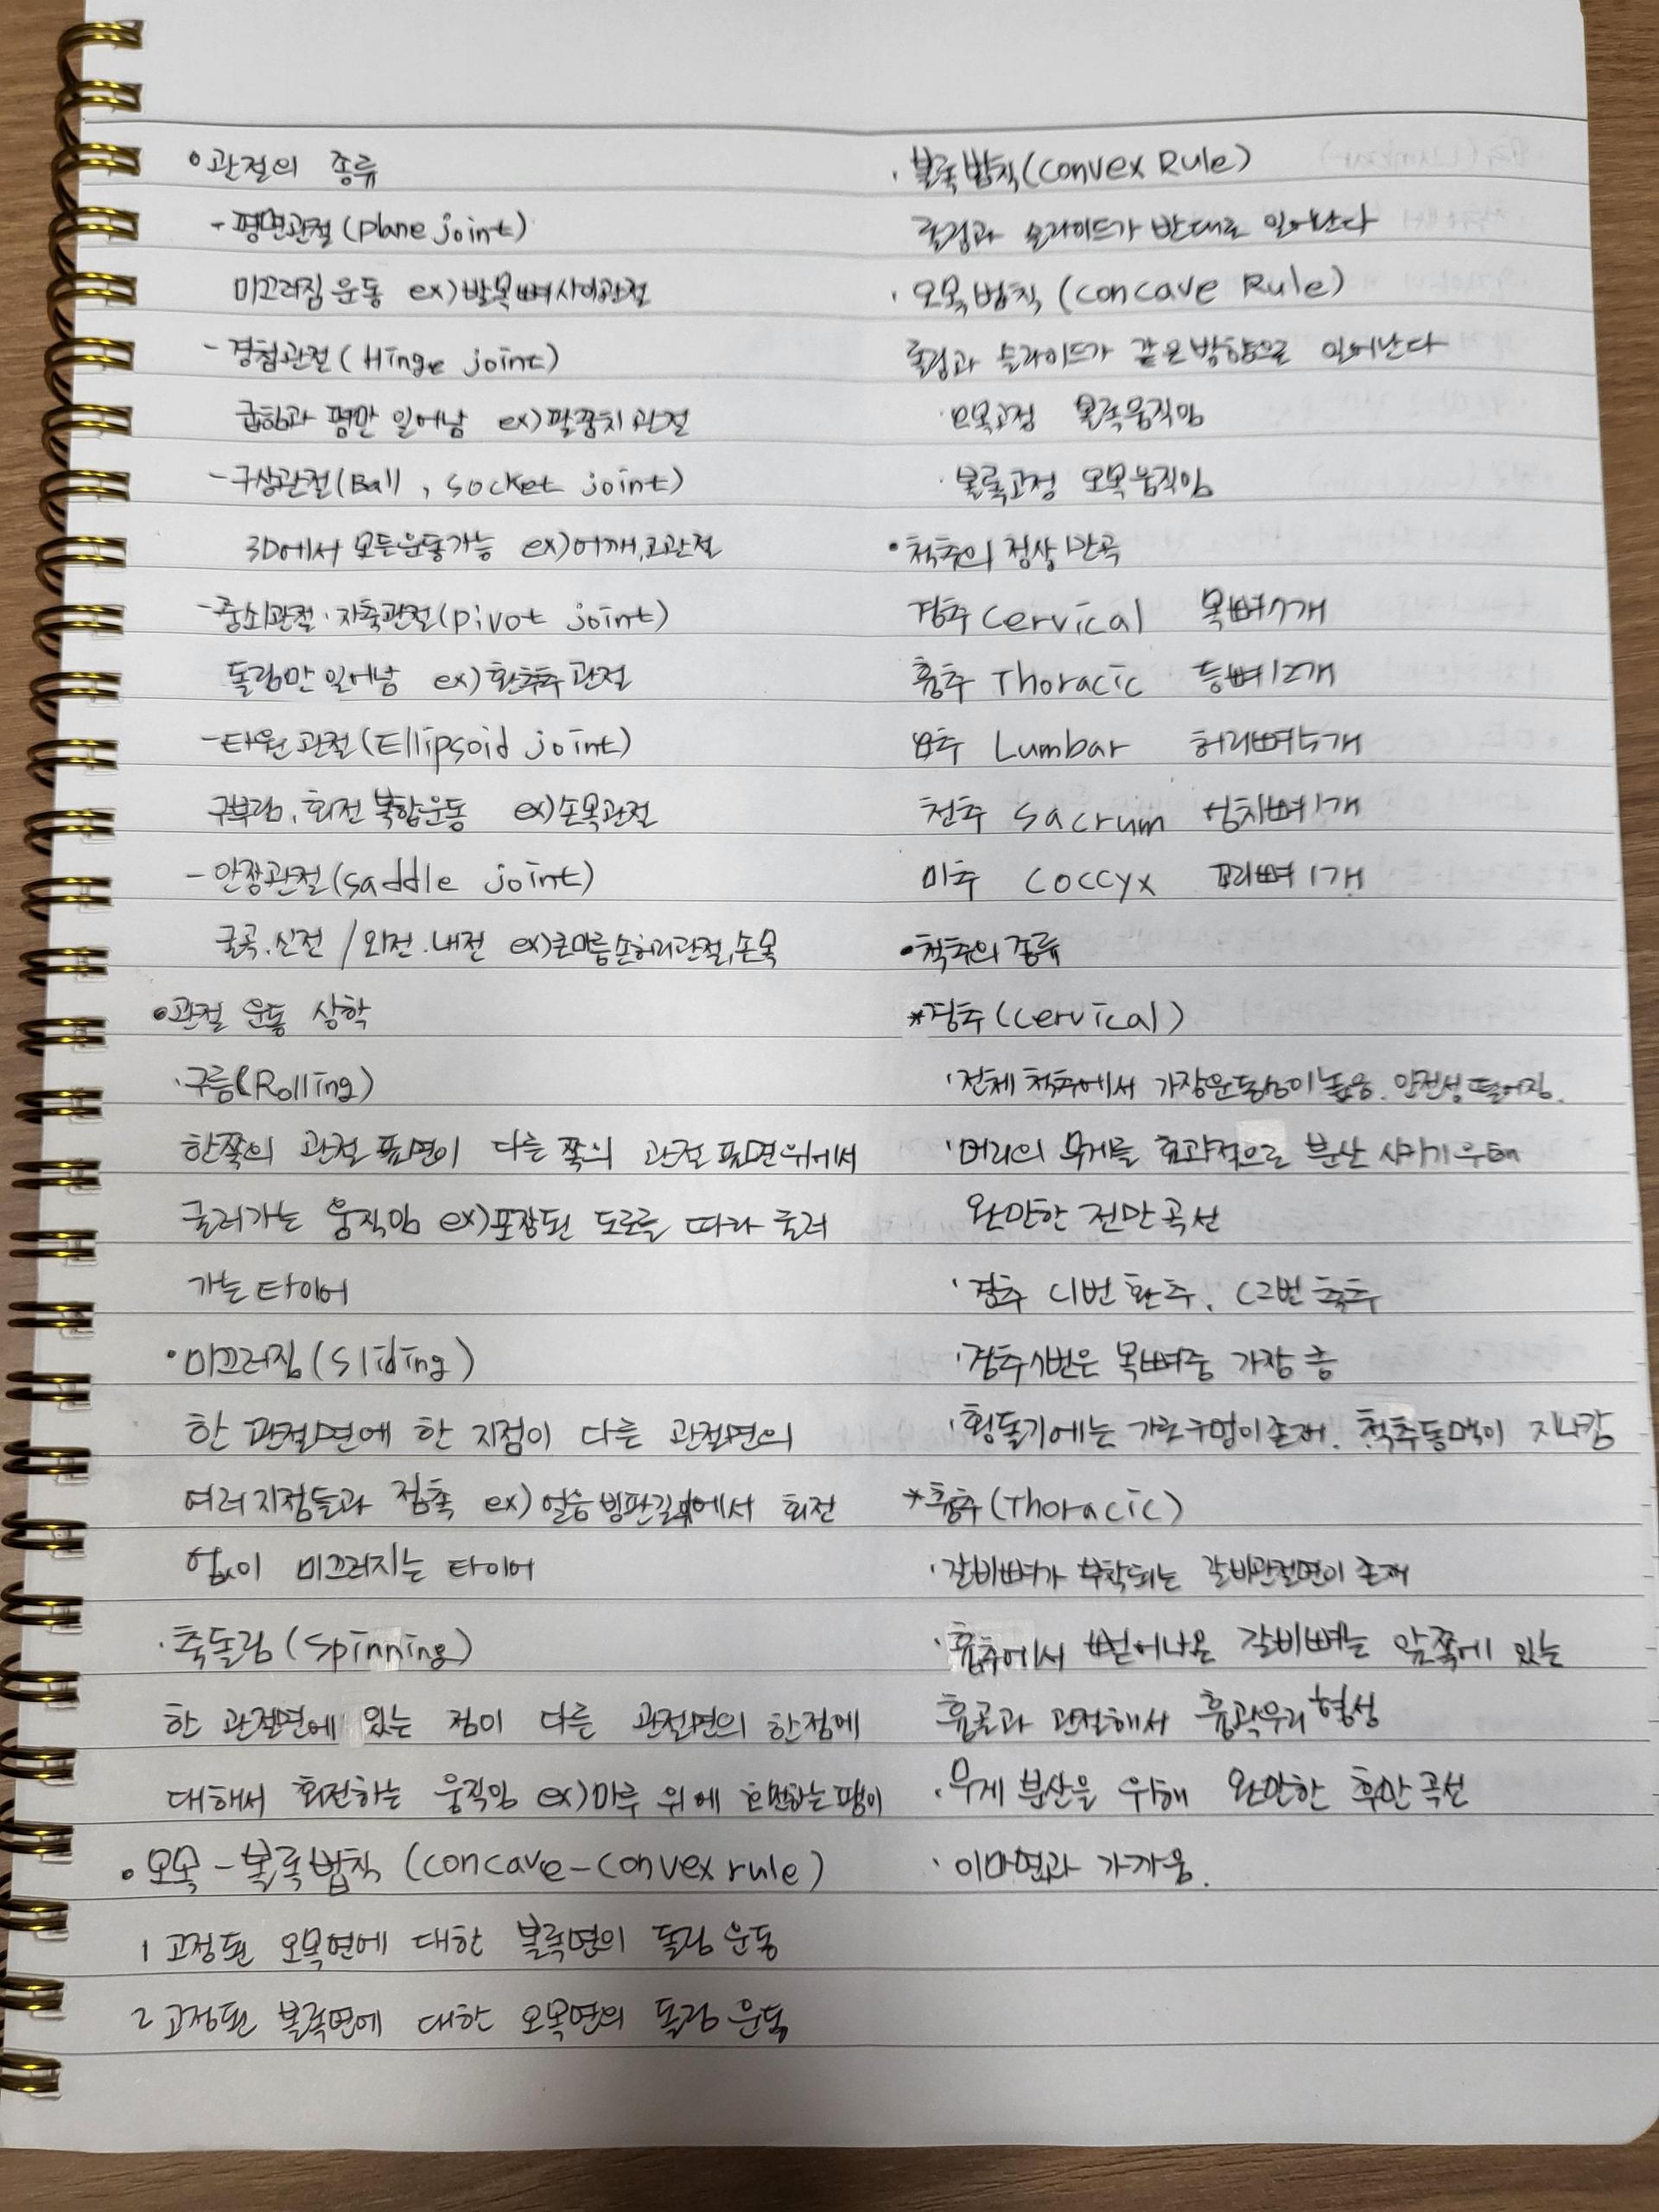 • 관절의 종류
- 평면관절 (plane joint)
미끄러짐 운동 ex) 발목뼈사이관절
- 경첩관절 ( Hinge joint)
굽힘과 폄만 일어남 ex) 팔꿈치 관절
- 구상관절 (Ball , socket joint)
3D에서 모든운동가능 ex) 어깨, 고관절
- 중쇠관절 · 차축관절 (pivot joint)
돌림만 일어남 ex) 환축추 관절
- 타원 관절 (Ellipsoid joint)
구부림, 회전 복합운동 ex) 손목관절
- 안장관절 (saddle joint)
굴곡. 신전 / 외전. 내전 ex) 손허리관절, 손목
• 관절 운동 상학
· 구름 (Rolling)
한쪽의 관절 표면이 다른 쪽의 관절 표면위에서
굴러가는 움직임 ex) 포장된 도로를 따라 굴러
가는 타이어
• 미끄러짐 (Sliding)
한 관절면에 한 지점이 다른 관절면의
여러 지점들과 접촉 ex) 얼음 빙판길에서 회전
없이 미끄러지는 타이어
· 축돌림 (Spinning)
한 관절면에 있는 점이 다른 관절면의 한점에
대해서 회전하는 움직임 ex) 마루 위에 회전하는 팽이
• 오목 - 볼록법칙 (concave-convex rule)
1 고정된 오목면에 대한 볼록면의 돌림 운동
2 고정된 볼록면에 대한 오목면의 돌림 운동
· 볼록법칙 (convex Rule)
롤링과 슬라이드가 반대로 일어난다
· 오목법칙 (concave Rule)
롤링과 슬라이드가 같은방향으로 일어난다
· 오목고정 볼록움직임
· 볼록고정 오목움직임
• 척추의 정상 만곡
경추 Cervical 목뼈 7개
흉추 Thoracic 등뼈 12개
요추 Lumbar 허리뼈 5개
천추 Sacrum 엉치뼈 1개
미추 Coccyx 꼬리뼈 1개
• 척추의 종류
* 경추 (Cervical)
· 전체 척추에서 가장운동성이높음. 안전성 떨어짐.
· 머리의 무게를 효과적으로 분산 시키기 위해
완만한 전만 곡선
· 경추 C1번 환추, C2번 축추
· 경추 번은 목뼈중 가장 큼
· 횡돌기에는 가로구멍이 존재, 척추동맥이 지나감
* 흉추 (Thoracic)
· 갈비뼈가 부착되는 갈비관절면이 존재
· 흉추에서 뻗어나온 갈비뼈는 앞쪽에 있는
흉골과 관절해서 흉곽우리 형성
· 무게 분산을 위해 완만한 후만 곡선
· 이마면과 가까움.